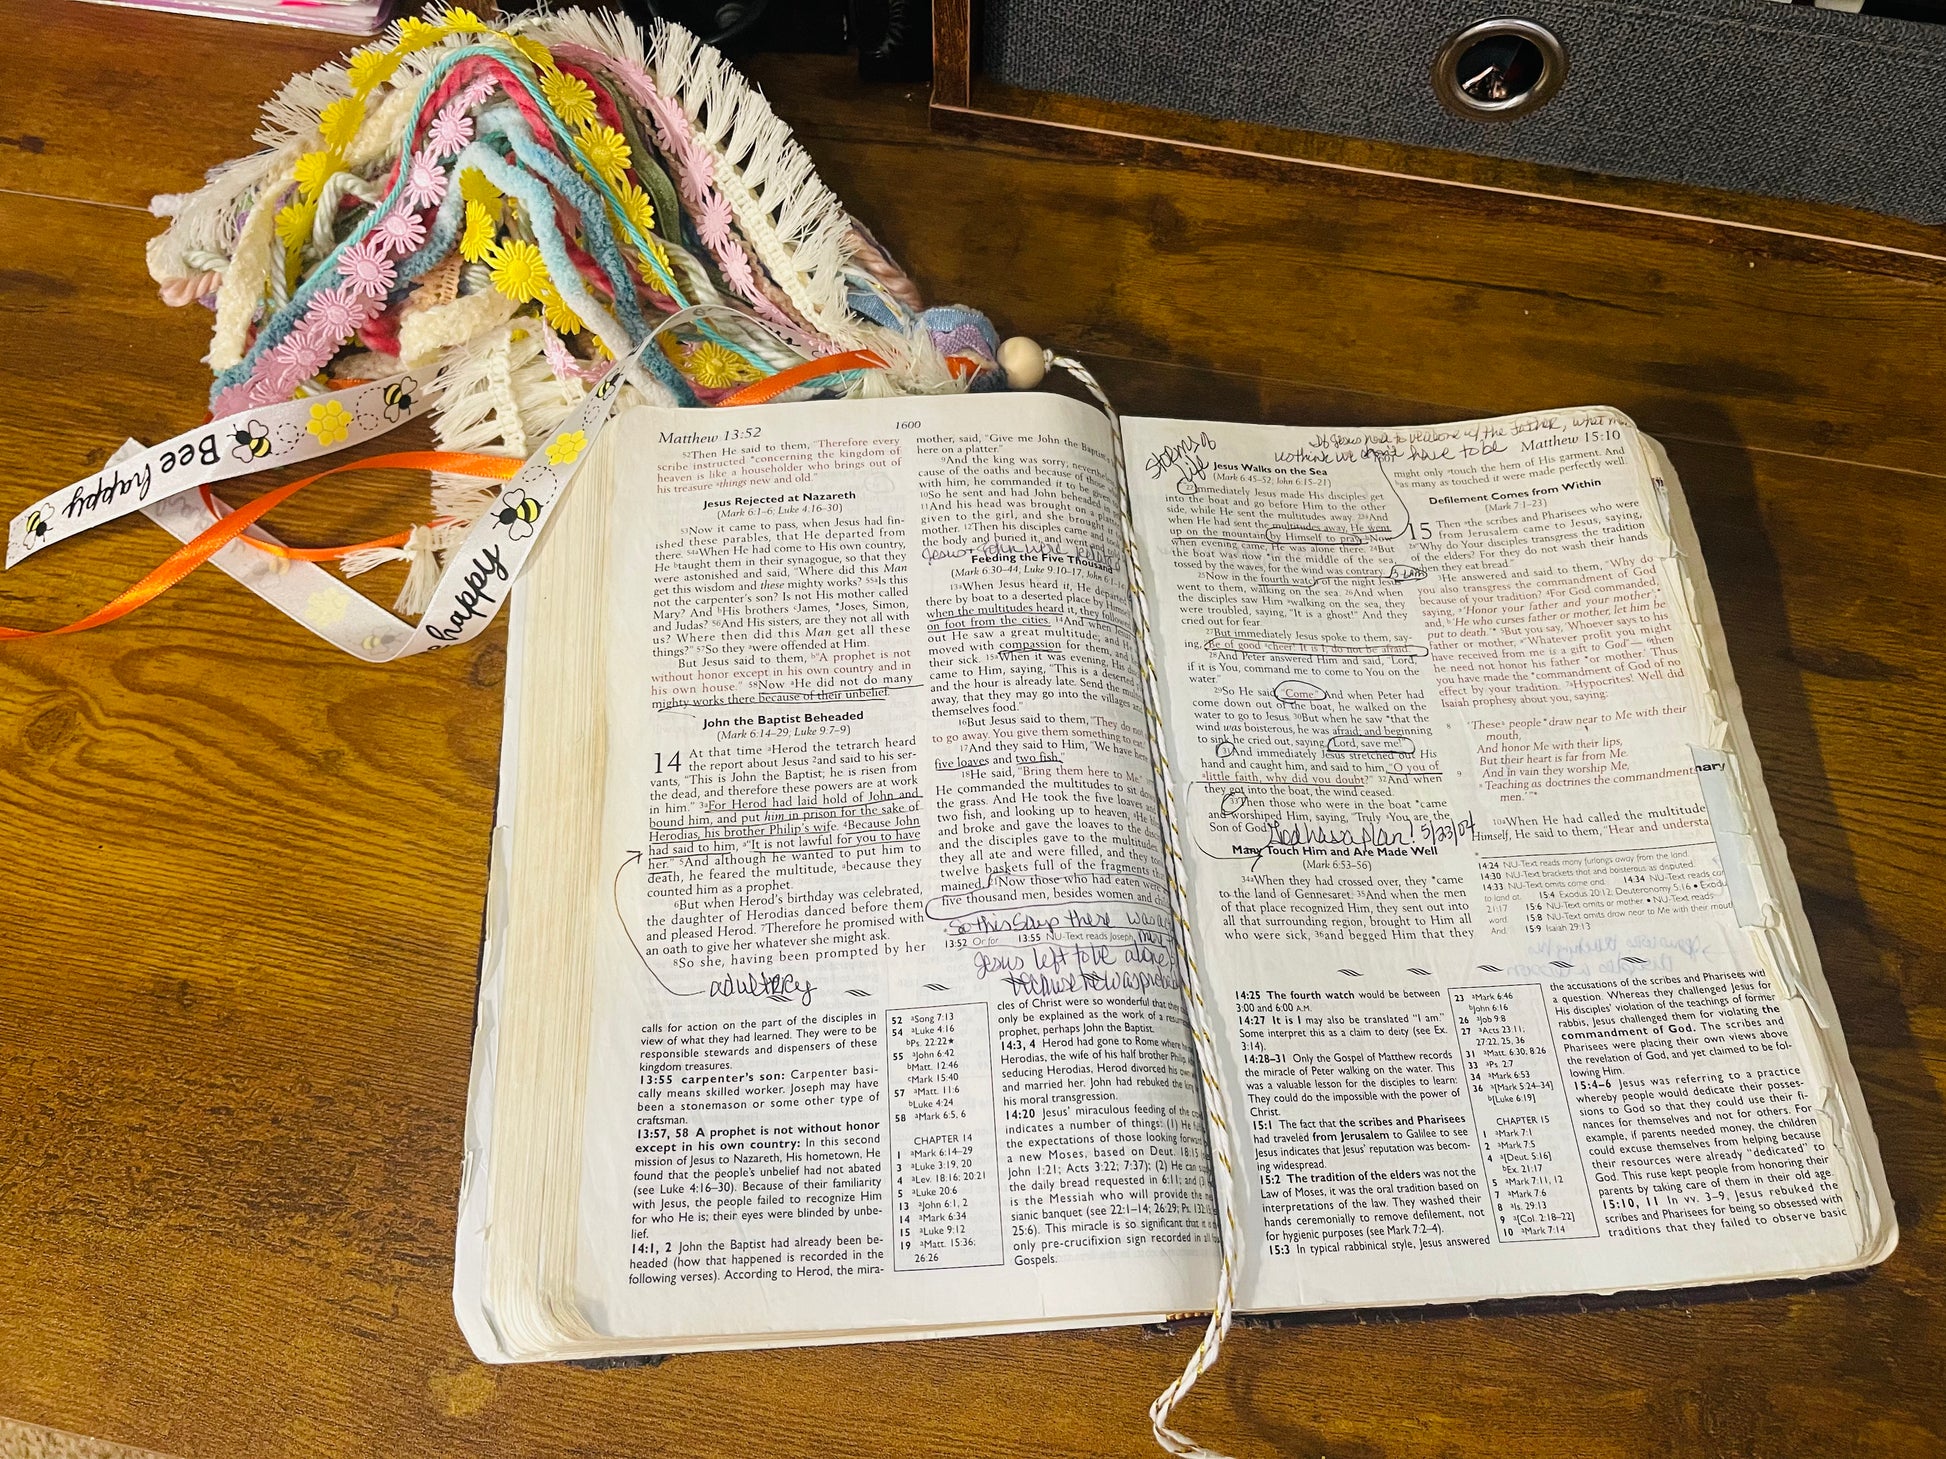 Bee happy
happy
Matthew 13:52
1600
52Then He said to them, "Therefore every
scribe instructed aconcerning the kingdom of
heaven is like a householder who brings out of
his treasure things new and old."
Jesus Rejected at Nazareth
(Mark 6:1–6; Luke 4:16–30)
53Now it came to pass, when Jesus had fin-
ished these parables, that He departed from
there. 54aWhen He had come to His own country,
He btaught them in their synagogue, so that they
were astonished and said, "Where did this Man
get this wisdom and these mighty works? 55aIs this
not the carpenter's son? Is not His mother called
Mary? And bHis brothers cJames, *Joses, Simon,
and Judas? 56And His sisters, are they not all with
us? Where then did this Man get all these
things?" 57So they awere offended at Him.
But Jesus said to them, b"A prophet is not
without honor except in his own country and in
his own house." 58Now aHe did not do many
mighty works there because of their unbelief.
John the Baptist Beheaded
(Mark 6:14–29; Luke 9:7–9)
14 At that time aHerod the tetrarch heard
the report about Jesus 2and said to his ser-
vants, "This is John the Baptist; he is risen from
the dead, and therefore these powers are at work
in him." 3aFor Herod had laid hold of John and
bound him, and put him in prison for the sake of
Herodias, his brother Philip's wife. 4Because John
had said to him, a"It is not lawful for you to have
her." 5And although he wanted to put him to
death, he feared the multitude, abecause they
counted him as a prophet.
6But when Herod's birthday was celebrated,
the daughter of Herodias danced before them
and pleased Herod. 7Therefore he promised with
an oath to give her whatever she might ask.
8So she, having been prompted by her
adultercy
mother, said, "Give me John the Baptist's
here on a platter."
9And the king was sorry; nevertheless,
cause of the oaths and because of those
with him, he commanded it to be given
10So he sent and had John beheaded in
11And his head was brought on a platter
given to the girl, and she brought it to
mother. 12Then his disciples came and
the body and buried it, and went and told
Jesus + John were
Feeding the Five Thousand
(Mark 6:30–44; Luke 9:10–17; John 6:1–14
13aWhen Jesus heard it, He departed
there by boat to a deserted place by Himself
when the multitudes heard it, they followed
on foot from the cities. 14And when Jesus
out He saw a great multitude; and He
moved with compassion for them, and
their sick. 15aWhen it was evening, His
came to Him, saying, "This is a deserted
and the hour is already late. Send the
away, that they may go into the villages
themselves food."
16But Jesus said to them, "They do not
to go away. You give them something to eat."
17And they said to Him, "We have here
five loaves and two fish."
18He said, "Bring them here to Me."
He commanded the multitudes to sit down
the grass. And He took the five loaves
two fish, and looking up to heaven, aHe
and broke and gave the loaves to the
and the disciples gave to the multitudes.
they all ate and were filled, and they took
twelve baskets full of the fragments that
mained. 21Now those who had eaten were
five thousand men, besides women and
So this says there was
13:52 Or for 13:55 NU-Text reads Joseph. more
Jesus left to be alone
because He was
calls for action on the part of the disciples in
view of what they had learned. They were to be
responsible stewards and dispensers of these
kingdom treasures.
13:55 carpenter's son: Carpenter basi-
cally means skilled worker. Joseph may have
been a stonemason or some other type of
craftsman.
13:57, 58 A prophet is not without honor
except in his own country: In this second
mission of Jesus to Nazareth, His hometown, He
found that the people's unbelief had not abated
(see Luke 4:16–30). Because of their familiarity
with Jesus, the people failed to recognize Him
for who He is; their eyes were blinded by unbe-
lief.
14:1, 2 John the Baptist had already been be-
headed (how that happened is recorded in the
following verses). According to Herod, the mira-
52 aSong 7:13
54 aLuke 4:16
bPs. 22:22★
55 aJohn 6:42
bMatt. 12:46
cMark 15:40
57 aMatt. 11:6
bLuke 4:24
58 aMark 6:5, 6
CHAPTER 14
1 aMark 6:14–29
3 aLuke 3:19, 20
4 aLev. 18:16; 20:21
5 aLuke 20:6
13 aJohn 6:1, 2
14 aMark 6:34
15 aLuke 9:12
19 aMatt. 15:36;
26:26
cles of Christ were so wonderful that they
only be explained as the work of a
prophet, perhaps John the Baptist.
14:3, 4 Herod had gone to Rome where he
Herodias, the wife of his half brother Philip.
seducing Herodias, Herod divorced his own
and married her. John had rebuked the king
his moral transgression.
14:20 Jesus' miraculous feeding of the
indicates a number of things: (1) He
the expectations of those looking forward
a new Moses, based on Deut. 18:15
John 1:21; Acts 3:22; 7:37); (2) He can
the daily bread requested in 6:11; and (3)
is the Messiah who will provide the mes-
sianic banquet (see 22:1–14; 26:29; Ps. 132:15
25:6). This miracle is so significant that it is
only pre-crucifixion sign recorded in all four
Gospels.
Storms of
life
If Jesus had to be alone w/ the Father, what
us think we don't have to be
Matthew 15:10
Jesus Walks on the Sea
(Mark 6:45–52; John 6:15–21)
22Immediately Jesus made His disciples get
into the boat and go before Him to the other
side, while He sent the multitudes away. 23aAnd
when He had sent the multitudes away, He went
up on the mountain by Himself to pray. bNow
when evening came, He was alone there. 24But
the boat was now *in the middle of the sea,
tossed by the waves, for the wind was contrary.
3-6 AM
25Now in the fourth watch of the night Jesus
went to them, walking on the sea. 26And when
the disciples saw Him awalking on the sea, they
were troubled, saying, "It is a ghost!" And they
cried out for fear.
27But immediately Jesus spoke to them, say-
ing, "Be of good acheer! It is I; do not be afraid."
28And Peter answered Him and said, "Lord,
if it is You, command me to come to You on the
water."
29So He said, "Come." And when Peter had
come down out of the boat, he walked on the
water to go to Jesus. 30But when he saw *that the
wind was boisterous, he was afraid; and beginning
to sink he cried out, saying, "Lord, save me!"
31And immediately Jesus stretched out His
hand and caught him, and said to him, "O you of
alittle faith, why did you doubt?" 32And when
they got into the boat, the wind ceased.
33Then those who were in the boat *came
and worshiped Him, saying, "Truly aYou are the
Son of God."
God has a plan! 5/23/07
Many Touch Him and Are Made Well
(Mark 6:53–56)
34aWhen they had crossed over, they *came
to the land of Gennesaret. 35And when the men
of that place recognized Him, they sent out into
all that surrounding region, brought to Him all
who were sick, 36and begged Him that they
might only atouch the hem of His garment. And
bas many as touched it were made perfectly well.
Defilement Comes from Within
(Mark 7:1–23)
15 Then athe scribes and Pharisees who were
from Jerusalem came to Jesus, saying,
2a"Why do Your disciples transgress the tradition
of the elders? For they do not wash their hands
when they eat bread."
3He answered and said to them, "Why do
you also transgress the commandment of God
because of your tradition? 4For God commanded,
saying, a'Honor your father and your mother';*
and, b'He who curses father or mother, let him be
put to death.'* 5But you say, 'Whoever says to his
father or mother, a"Whatever profit you might
have received from me is a gift to God"— 6then
he need not honor his father *or mother.' Thus
you have made the *commandment of God of no
effect by your tradition. 7aHypocrites! Well did
Isaiah prophesy about you, saying:
8 'These a people *draw near to Me with their
mouth,
And honor Me with their lips,
But their heart is far from Me.
9 And in vain they worship Me,
aTeaching as doctrines the commandments
men.'"*
nary
10aWhen He had called the multitude
Himself, He said to them, "Hear and understand
14:24 NU-Text reads many furlongs away from the land.
14:30 NU-Text brackets that and boisterous as disputed.
14:33 NU-Text omits came and. 14:34 NU-Text reads came
to land at. 15:4 Exodus 20:12; Deuteronomy 5:16 • Exodus
21:17 15:6 NU-Text omits or mother • NU-Text reads
word. 15:8 NU-Text omits draw near to Me with their mouth,
And. 15:9 Isaiah 29:13
14:25 The fourth watch would be between
3:00 and 6:00 A.M.
14:27 It is I may also be translated "I am."
Some interpret this as a claim to deity (see Ex.
3:14).
14:28–31 Only the Gospel of Matthew records
the miracle of Peter walking on the water. This
was a valuable lesson for the disciples to learn:
They could do the impossible with the power of
Christ.
15:1 The fact that the scribes and Pharisees
had traveled from Jerusalem to Galilee to see
Jesus indicates that Jesus' reputation was becom-
ing widespread.
15:2 The tradition of the elders was not the
Law of Moses, it was the oral tradition based on
interpretations of the law. They washed their
hands ceremonially to remove defilement, not
for hygienic purposes (see Mark 7:2–4).
15:3 In typical rabbinical style, Jesus answered
23 aMark 6:46
bJohn 6:16
26 aJob 9:8
27 aActs 23:11;
27:22, 25, 36
31 aMatt. 6:30; 8:26
33 aPs. 2:7
34 aMark 6:53
36 a[Mark 5:24–34]
b[Luke 6:19]
CHAPTER 15
1 aMark 7:1
2 aMark 7:5
4 a[Deut. 5:16]
bEx. 21:17
5 aMark 7:11, 12
7 aMark 7:6
8 aIs. 29:13
9 a[Col. 2:18–22]
10 aMark 7:14
the accusations of the scribes and Pharisees with
a question. Whereas they challenged Jesus for
His disciples' violation of the teachings of former
rabbis, Jesus challenged them for violating the
commandment of God. The scribes and
Pharisees were placing their own views above
the revelation of God, and yet claimed to be fol-
lowing Him.
15:4–6 Jesus was referring to a practice
whereby people would dedicate their posses-
sions to God so that they could use their fi-
nances for themselves and not for others. For
example, if parents needed money, the children
could excuse themselves from helping because
their resources were already "dedicated" to
God. This ruse kept people from honoring their
parents by taking care of them in their old age.
15:10, 11 In vv. 3–9, Jesus rebuked the
scribes and Pharisees for being so obsessed with
traditions that they failed to observe basic